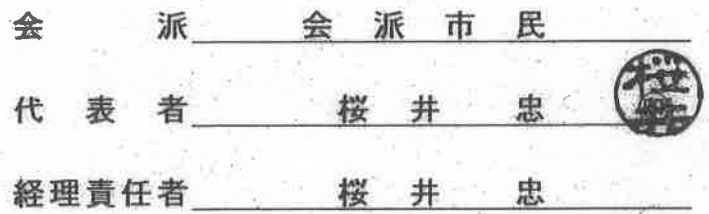 会派 会派市民
代表者 桜井 忠
経理責任者 桜井 忠